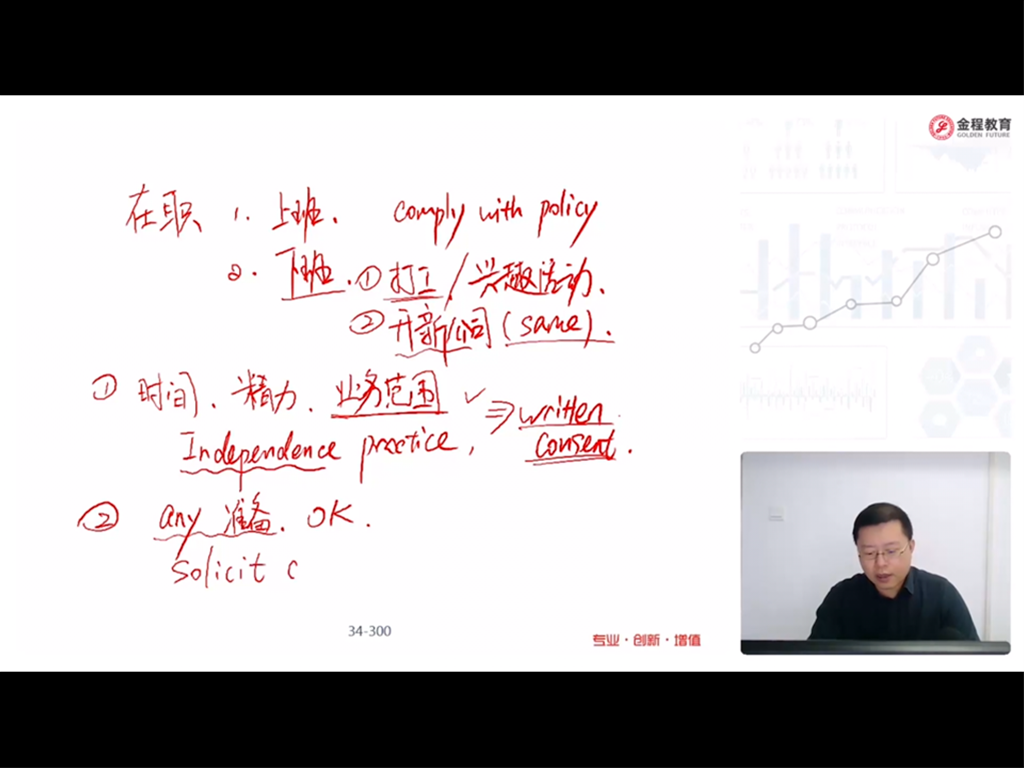 金程教育
GOLDEN FUTURE
在职 1. 上班. comply with policy
2. 下班. ① 打工 / 兴趣活动.
② 开新公司 (same).
① 时间、精力、业务范围 ✓ ⇒ written consent.
Independence practice,
② any 准备. OK.
Solicit c
34-300
专业·创新·增值